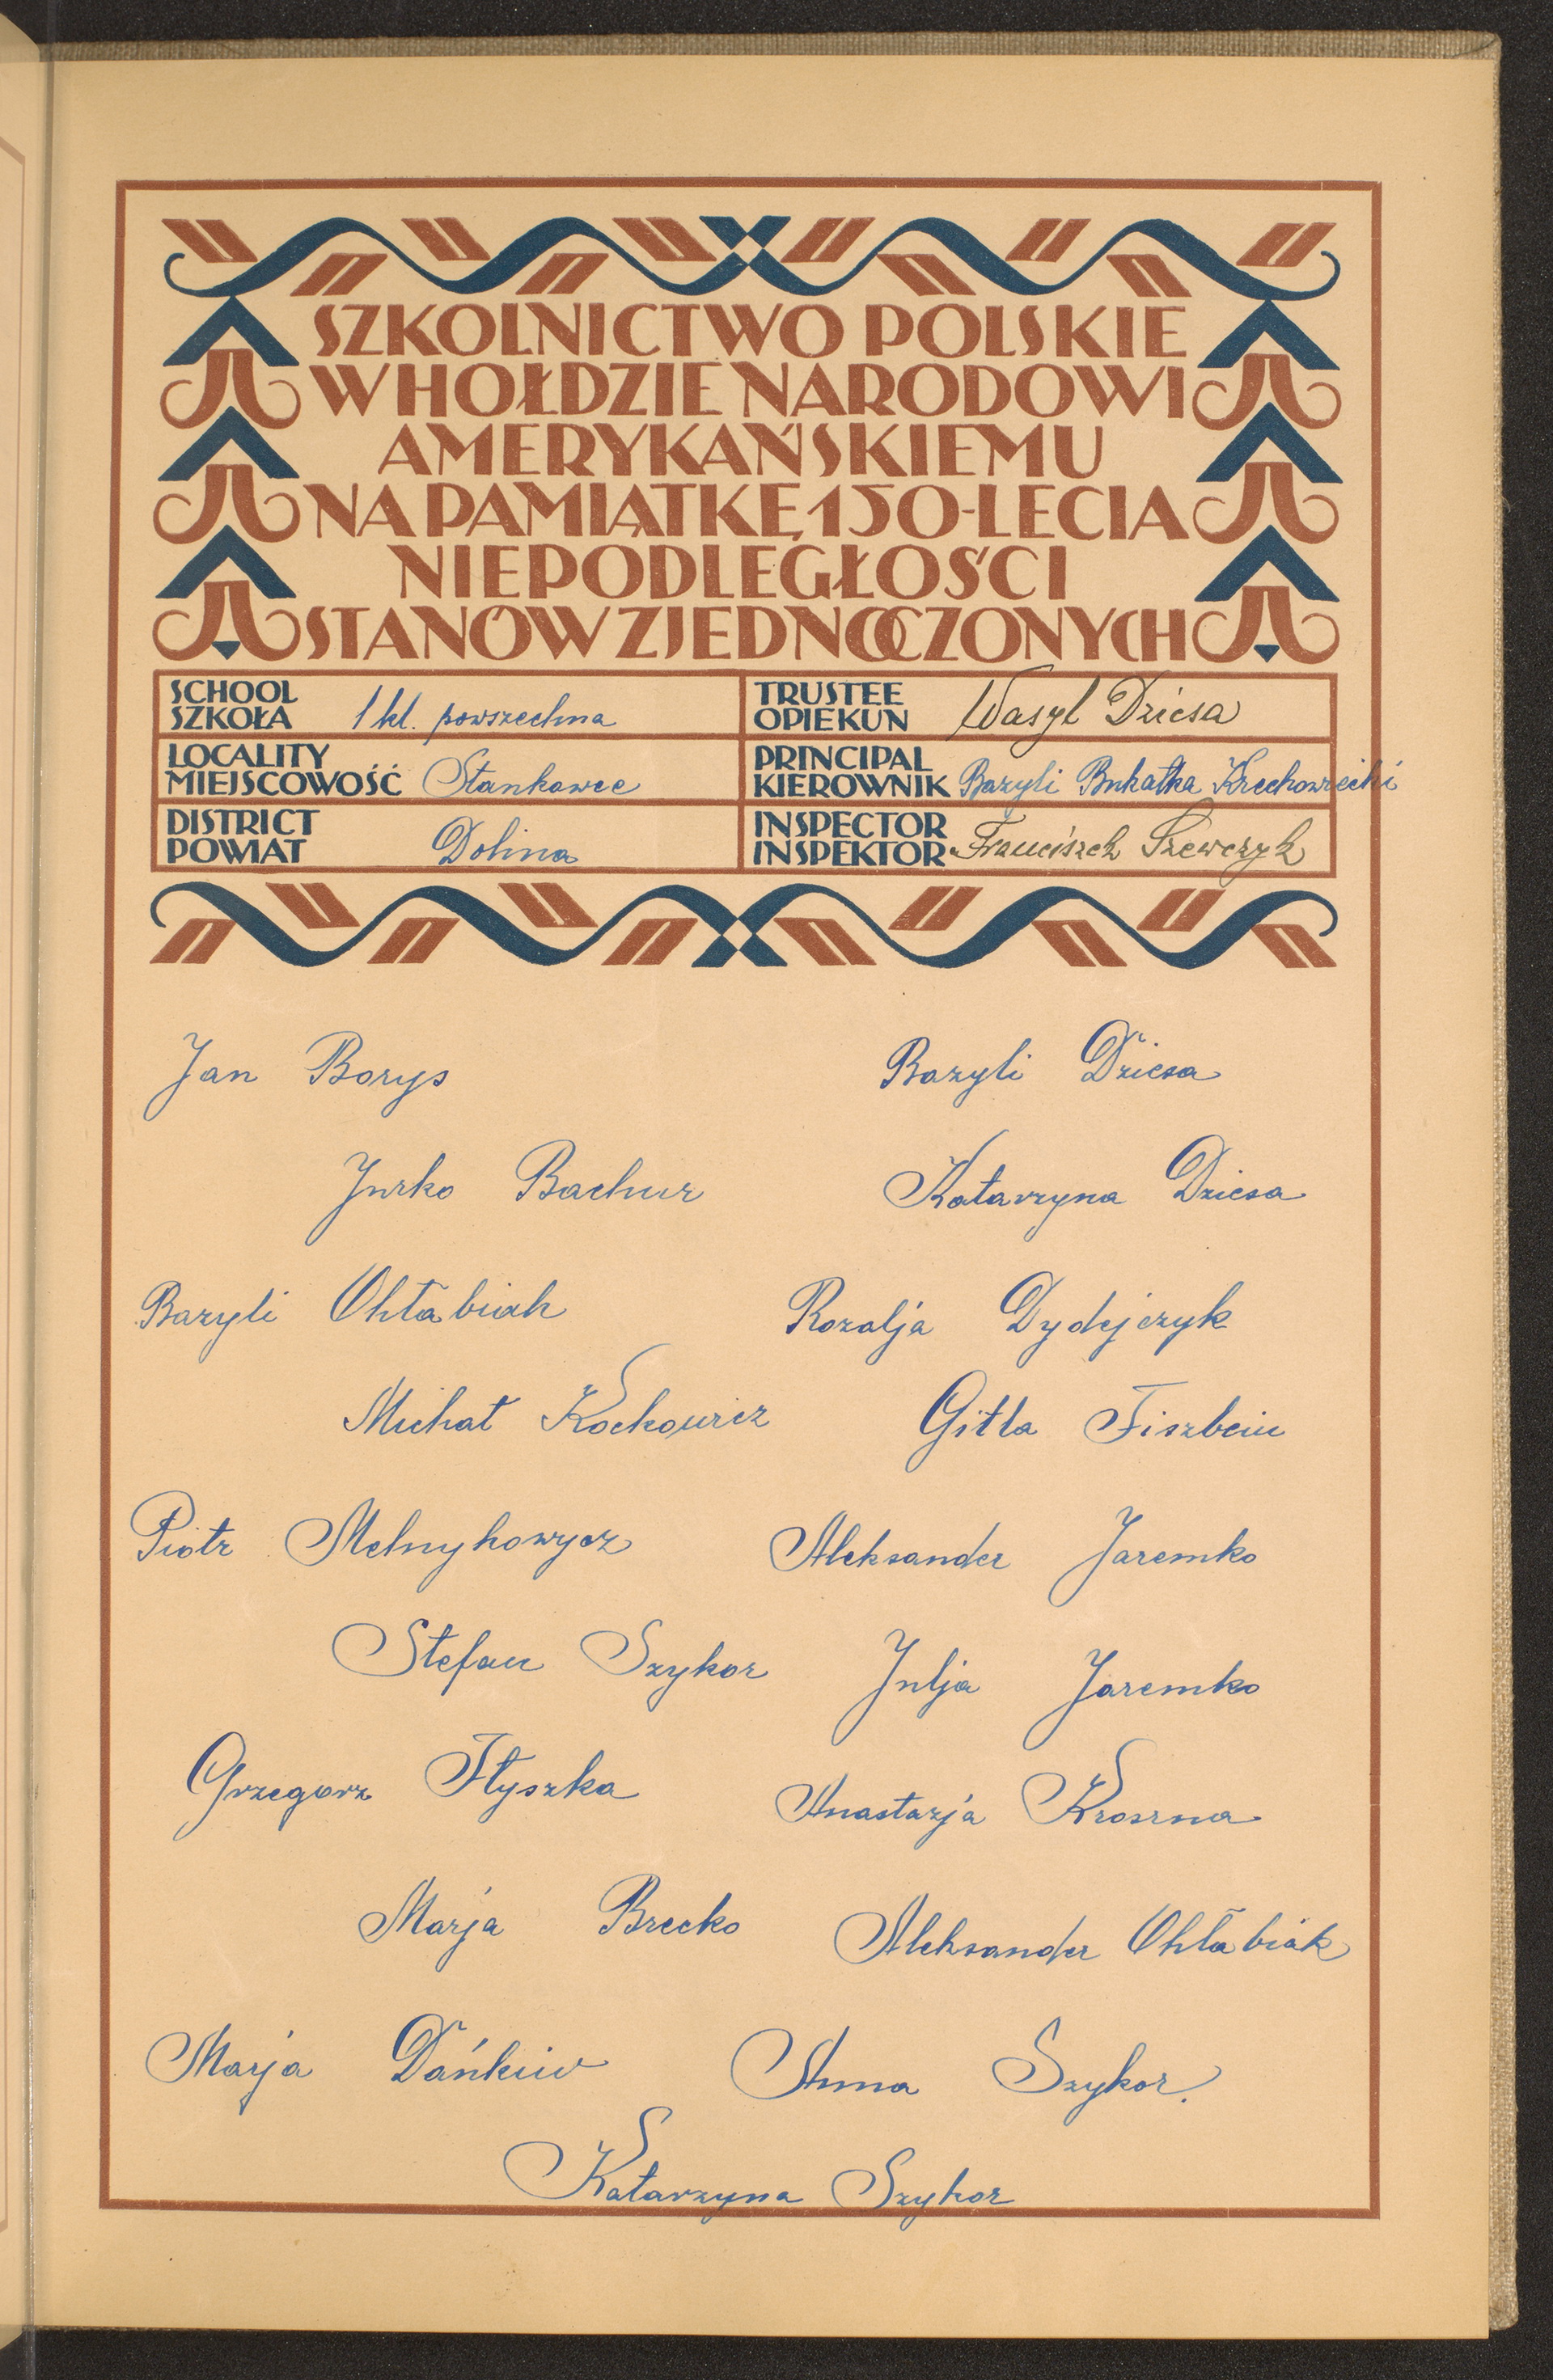 SZKOLNICTWO POLSKIE
W HOŁDZIE NARODOWI
AMERYKAŃSKIEMU
NA PAMIĄTKĘ 150-LECIA
NIEPODLEGŁOŚCI
STANÓW ZJEDNOCZONYCH
SCHOOL
SZKOŁA 1 kl. powszechna
TRUSTEE
OPIEKUN Wasyl Dzicsa
LOCALITY
MIEJSCOWOŚĆ Stankowce
PRINCIPAL
KIEROWNIK Bazyli Bukatka Krechowiecki
DISTRICT
POWIAT Dolina
INSPECTOR
INSPEKTOR Franciszek Szewczyk
Jan Borys
Bazyli Dzicsa
Jurko Bachur
Katarzyna Dzicsa
Bazyli Ohłabiak
Rozalja Dydejczyk
Michał Kockowicz
Gitla Fiszbein
Piotr Melnykowycz
Aleksander Jaremko
Stefan Szykor
Julja Jaremko
Grzegorz Ftyszka
Anastazja
Marja Brecko
Aleksander Ohłabiak
Marja Dańkiw
Anna Szykor.
Katarzyna Szykor